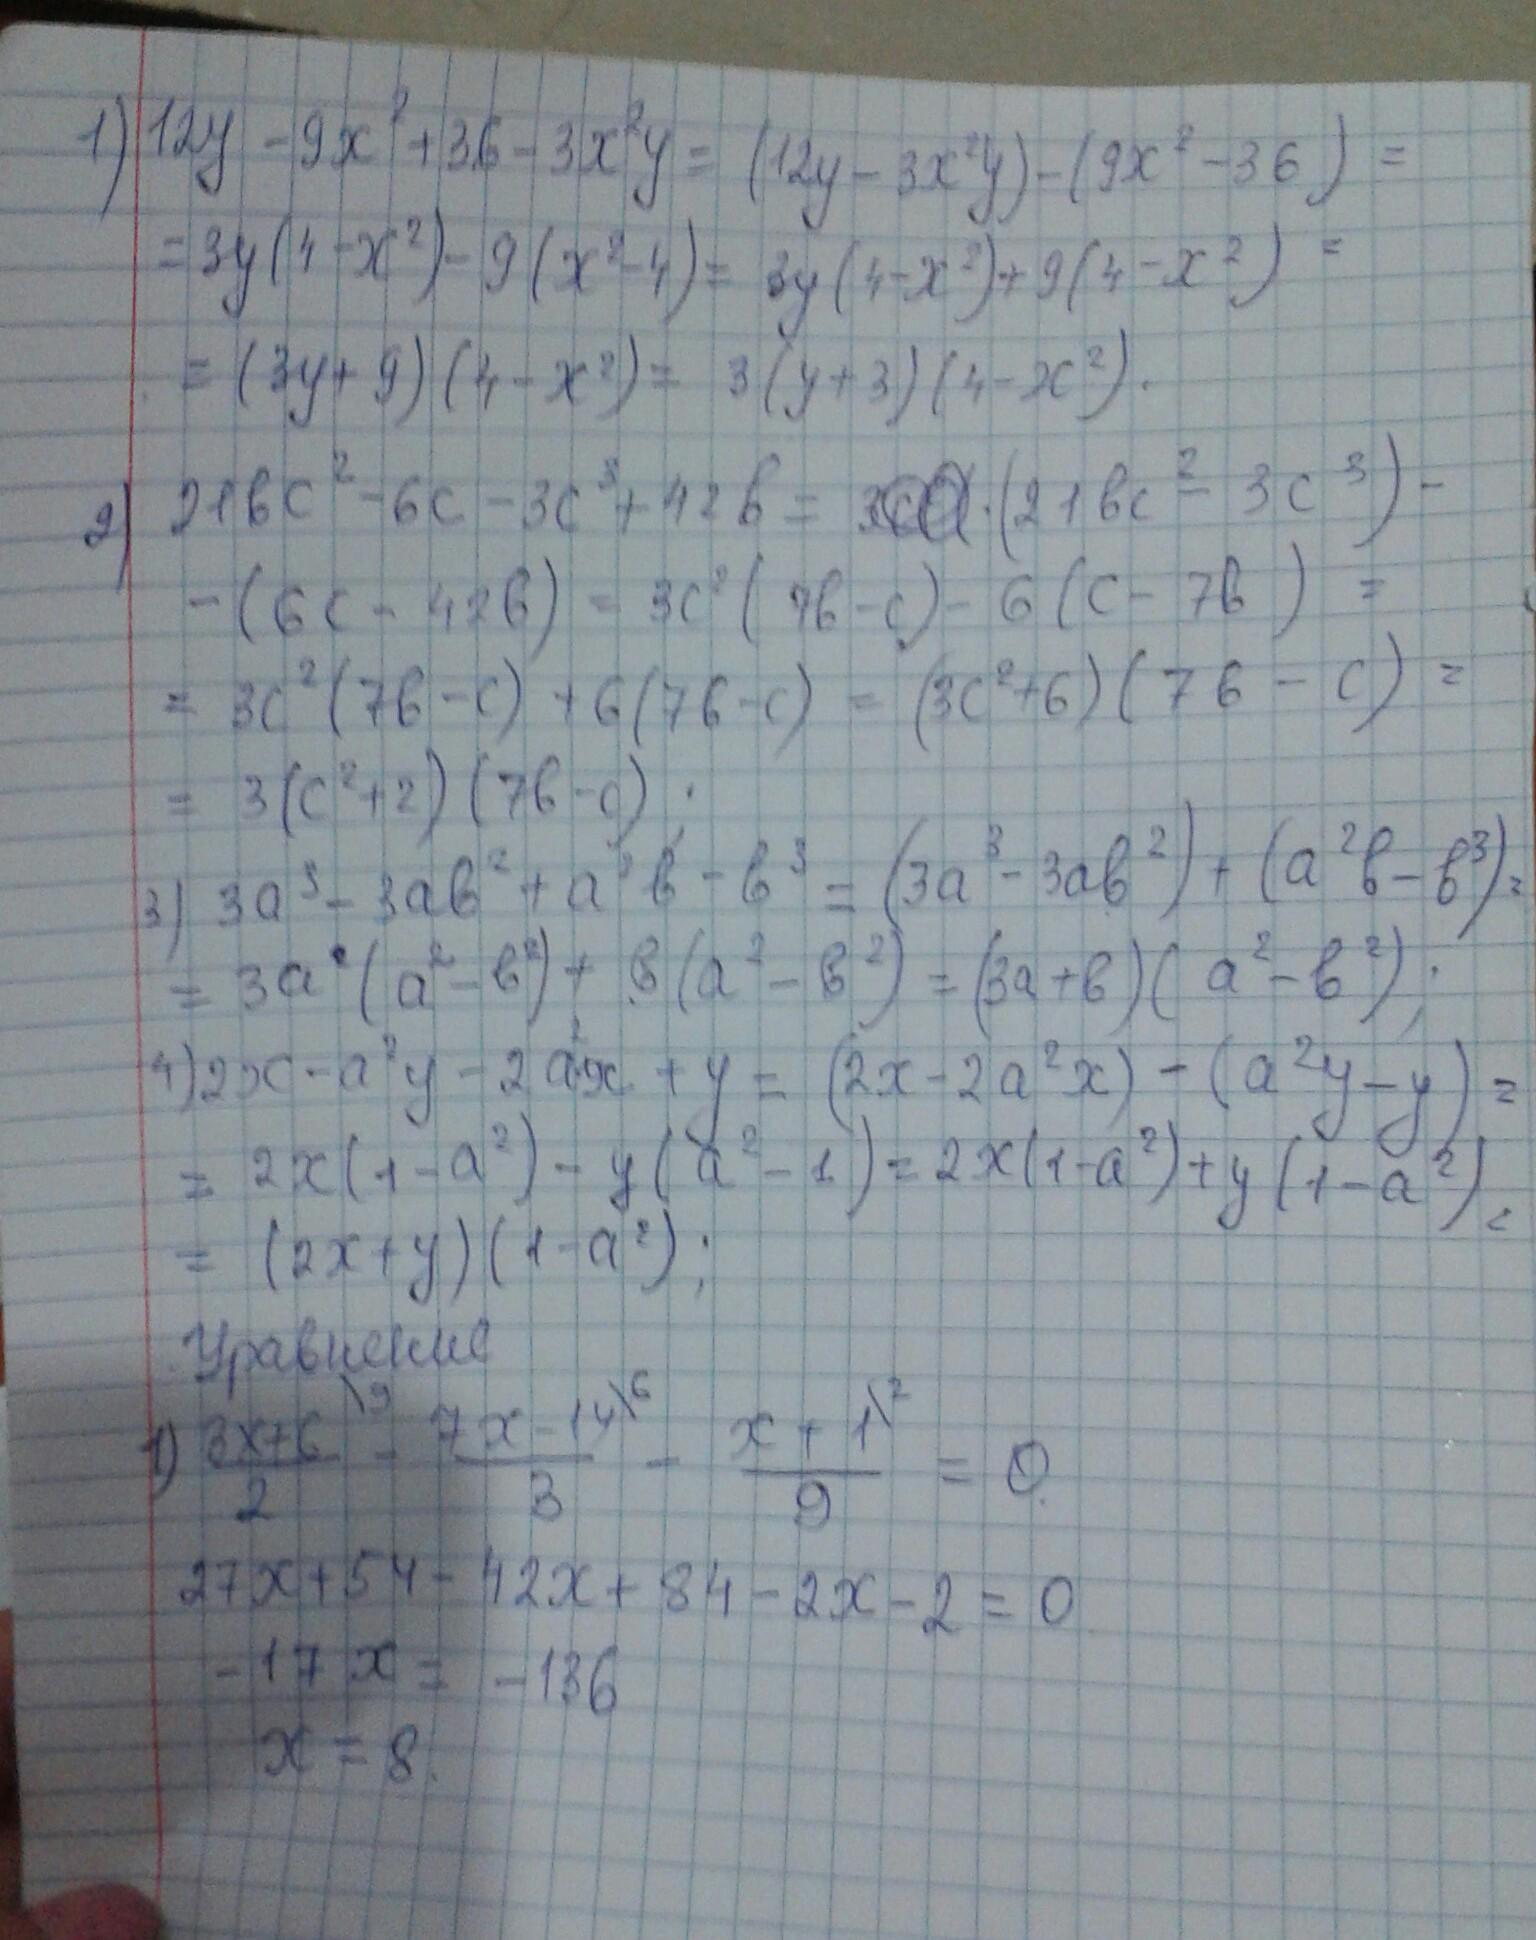 1) 12y - 9x² + 36 - 3x²y = (12y - 3x²y) - (9x² - 36) =
= 3y(4 - x²) - 9(x² - 4) = 3y(4 - x²) + 9(4 - x²) =
= (3y + 9)(4 - x²) = 3(y + 3)(4 - x²).
2) 21bc² - 6c - 3c³ + 42b = (21bc² - 3c³) -
- (6c - 42b) = 3c²(7b - c) - 6(c - 7b) =
= 3c²(7b - c) + 6(7b - c) = (3c² + 6)(7b - c) =
= 3(c² + 2)(7b - c);
3) 3a³ - 3ab² + a²b - b³ = (3a³ - 3ab²) + (a²b - b³) =
= 3a(a² - b²) + b(a² - b²) = (3a + b)(a² - b²);
4) 2x - a²y - 2a²x + y = (2x - 2a²x) - (a²y - y) =
= 2x(1 - a²) - y(a² - 1) = 2x(1 - a²) + y(1 - a²) =
= (2x + y)(1 - a²);
Уравнение
1) (3x+6)/2 \9 - (7x-14)/3 \6 - (x+1)/9 \2 = 0
27x + 54 - 42x + 84 - 2x - 2 = 0
-17x = -136
x = 8.